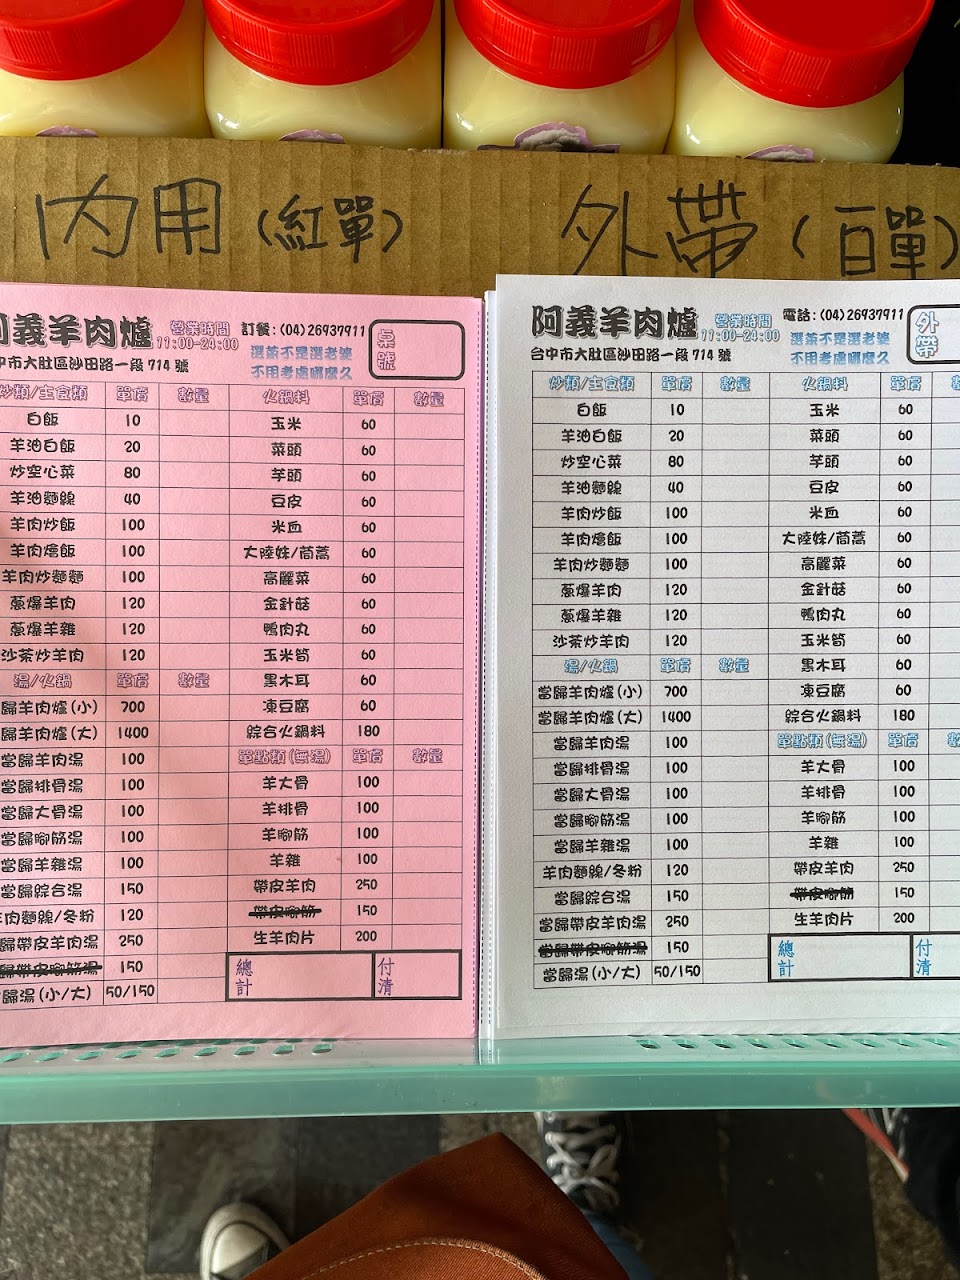 內用(紅單)
外帶(百單)
阿義羊肉爐 營業時間 訂餐:(04)26937911 桌號
11:00-24:00
選菜不是選老婆
中市大肚區沙田路一段 714 號 不用考慮哪麼久
炒類/主食類 單價 數量 火鍋料 單價 數量
白飯 10 玉米 60
羊油白飯 20 菜頭 60
炒空心菜 80 芋頭 60
羊油麵線 40 豆皮 60
羊肉炒飯 100 米血 60
羊肉燴飯 100 大陸妹/茼蒿 60
羊肉炒麵麵 100 高麗菜 60
蔥爆羊肉 120 金針菇 60
蔥爆羊雜 120 鴨肉丸 60
沙茶炒羊肉 120 玉米筍 60
湯/火鍋 單價 數量 黑木耳 60
歸羊肉爐(小) 700 凍豆腐 60
歸羊肉爐(大) 1400 綜合火鍋料 180
當歸羊肉湯 100 單點類(無湯) 單價 數量
當歸排骨湯 100 羊大骨 100
當歸大骨湯 100 羊排骨 100
當歸腳筋湯 100 羊腳筋 100
當歸羊雜湯 100 羊雜 100
當歸綜合湯 150 帶皮羊肉 250
羊肉麵線/冬粉 120 帶皮腳筋 150
歸帶皮羊肉湯 250 生羊肉片 200
歸帶皮腳筋湯 150 總計 付清
歸湯(小/大) 50/150
阿義羊肉爐 營業時間 電話:(04)26937911 外帶
11:00-24:00
選菜不是選老婆
台中市大肚區沙田路一段 714 號 不用考慮哪麼久
炒類/主食類 單價 數量 火鍋料 單價 數
白飯 10 玉米 60
羊油白飯 20 菜頭 60
炒空心菜 80 芋頭 60
羊油麵線 40 豆皮 60
羊肉炒飯 100 米血 60
羊肉燴飯 100 大陸妹/茼蒿 60
羊肉炒麵麵 100 高麗菜 60
蔥爆羊肉 120 金針菇 60
蔥爆羊雜 120 鴨肉丸 60
沙茶炒羊肉 120 玉米筍 60
湯/火鍋 單價 數量 黑木耳 60
當歸羊肉爐(小) 700 凍豆腐 60
當歸羊肉爐(大) 1400 綜合火鍋料 180
當歸羊肉湯 100 單點類(無湯) 單價 數
當歸排骨湯 100 羊大骨 100
當歸大骨湯 100 羊排骨 100
當歸腳筋湯 100 羊腳筋 100
當歸羊雜湯 100 羊雜 100
羊肉麵線/冬粉 120 帶皮羊肉 250
當歸綜合湯 150 帶皮腳筋 150
當歸帶皮羊肉湯 250 生羊肉片 200
當歸帶皮腳筋湯 150 總計 付清
當歸湯(小/大) 50/150